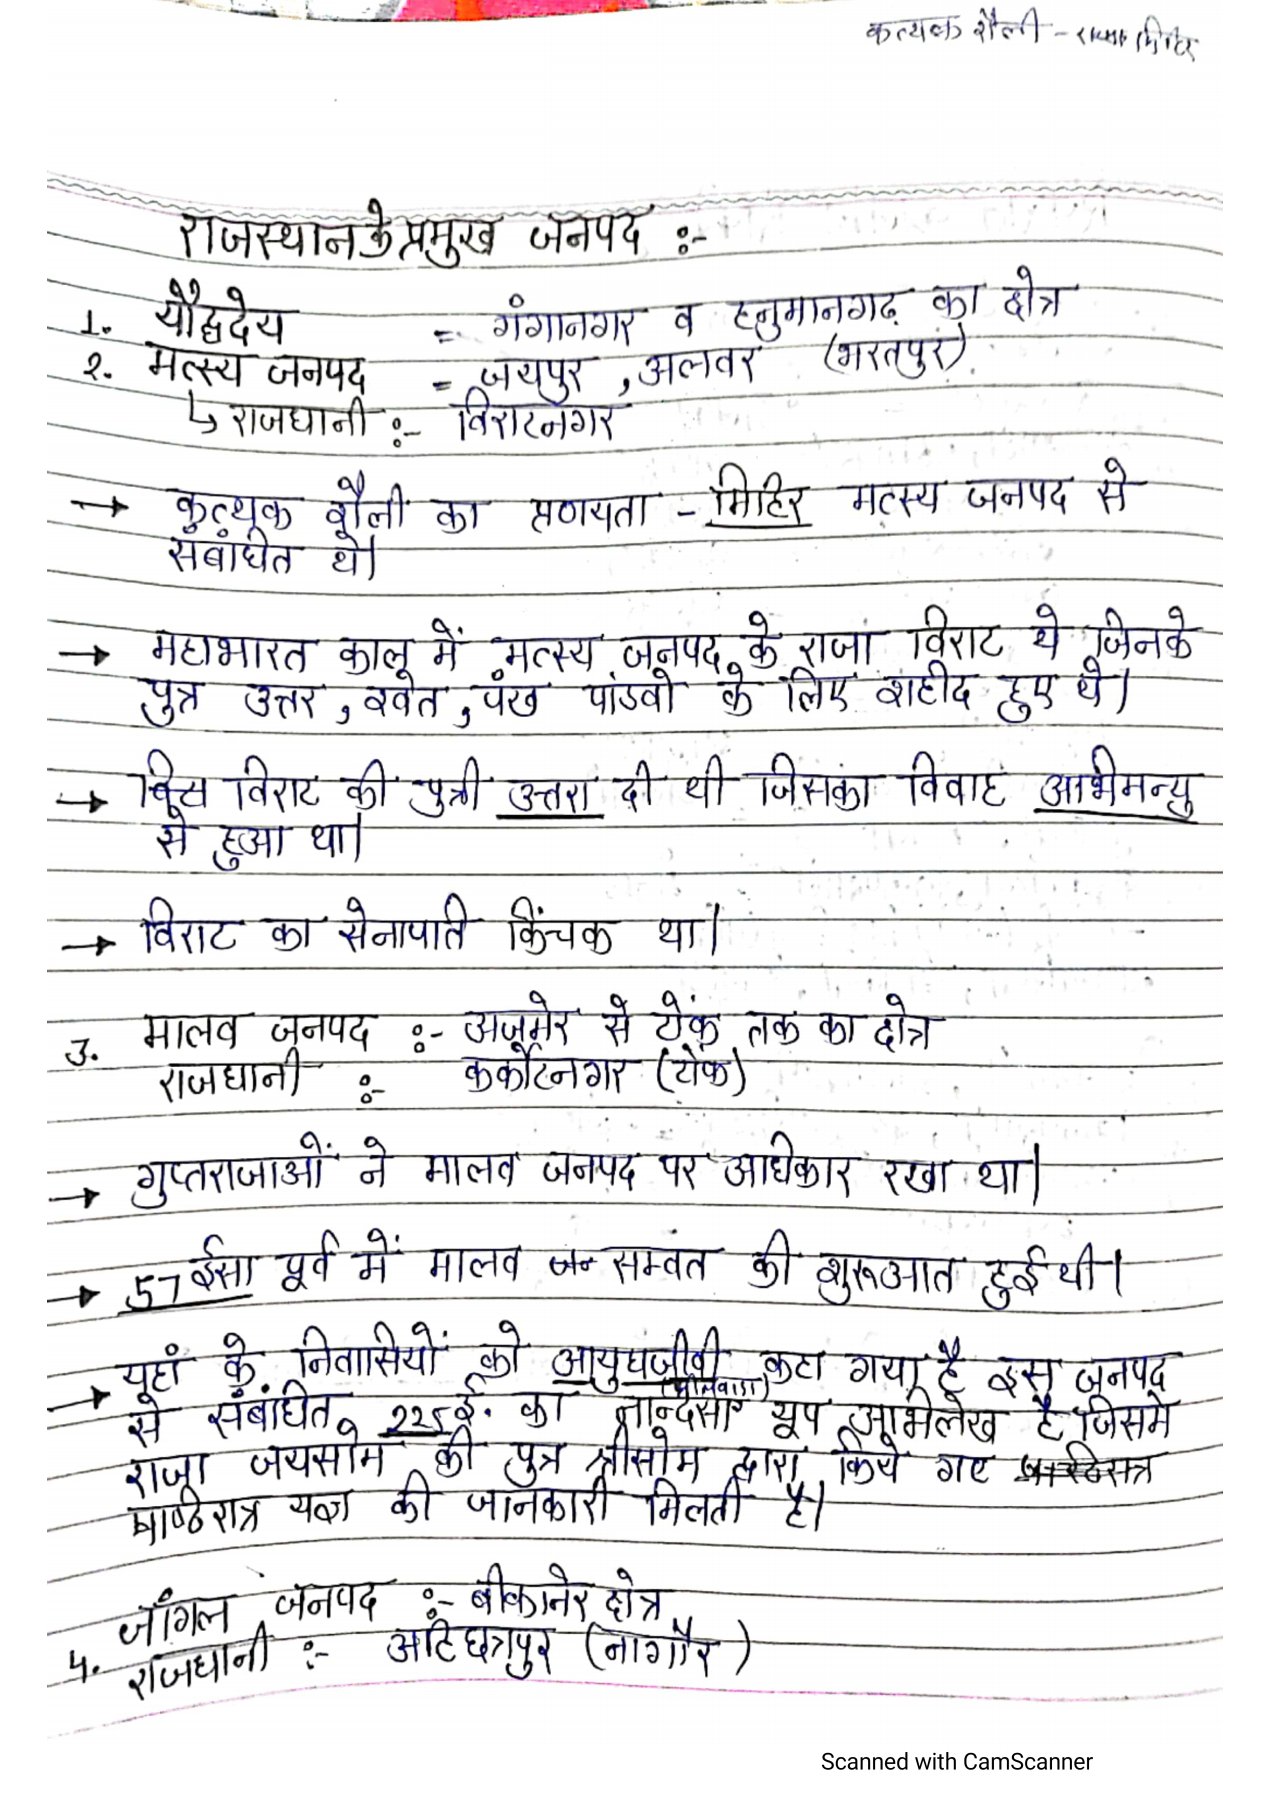 कत्थक शैली - राजा मिहिर
राजस्थान के प्रमुख जनपद :-
1. यौद्धदेय = गंगानगर व हनुमानगढ़ का क्षेत्र
2. मत्स्य जनपद = जयपुर, अलवर (भरतपुर)
↳ राजधानी :- विराटनगर
→ कुत्थुक शैली का प्रणयता - मिहिर मत्स्य जनपद से
संबंधित थे।
→ महाभारत काल में मत्स्य जनपद के राजा विराट थे जिनके
पुत्र उत्तर, श्वेत, पंख पांडवो के लिए शहीद हुए थे।
→ विराट की पुत्री उत्तरा दी थी जिसका विवाह अभिमन्यु
से हुआ था।
→ विराट का सेनापति किंचक था।
3. मालव जनपद :- अजमेर से टोंक तक का क्षेत्र
राजधानी :- कर्कोटनगर (टोंक)
→ गुप्तराजाओं ने मालव जनपद पर अधिकार रखा था।
→ 57 ईसा पूर्व में मालव जन सम्वत की शुरूआत हुई थी।
→ यहां के निवासियों को आयुधजीवी कहा गया है इस जनपद
(भीलवाडा)
से संबंधित 225 ई. का नान्दसा यूप अभिलेख है जिसमे
राजा जयसोम की पुत्र श्रीसोम द्वारा किये गए
षाष्ठिरात्र यज्ञ की जानकारी मिलती है।
4. जांगल जनपद :- बीकानेर क्षेत्र
राजधानी :- अहिछत्रपुर (नागौर)
Scanned with CamScanner